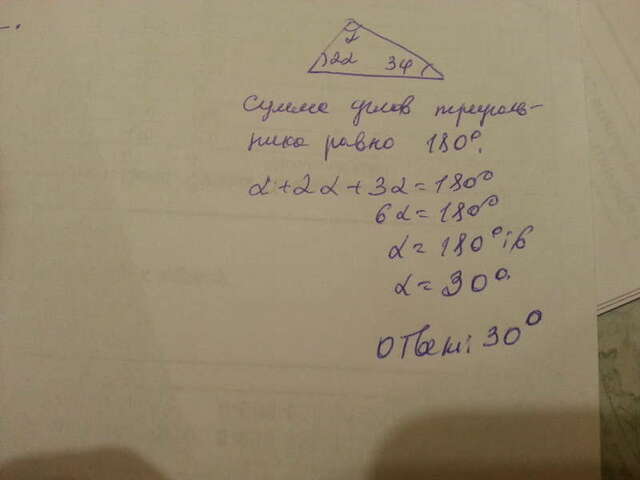 α
2α 3α
Сумма углов треуголь-
ника равно 180°.
α+2α+3α=180°
6α=180°
α=180°:6
α=30°
Ответ: 30°